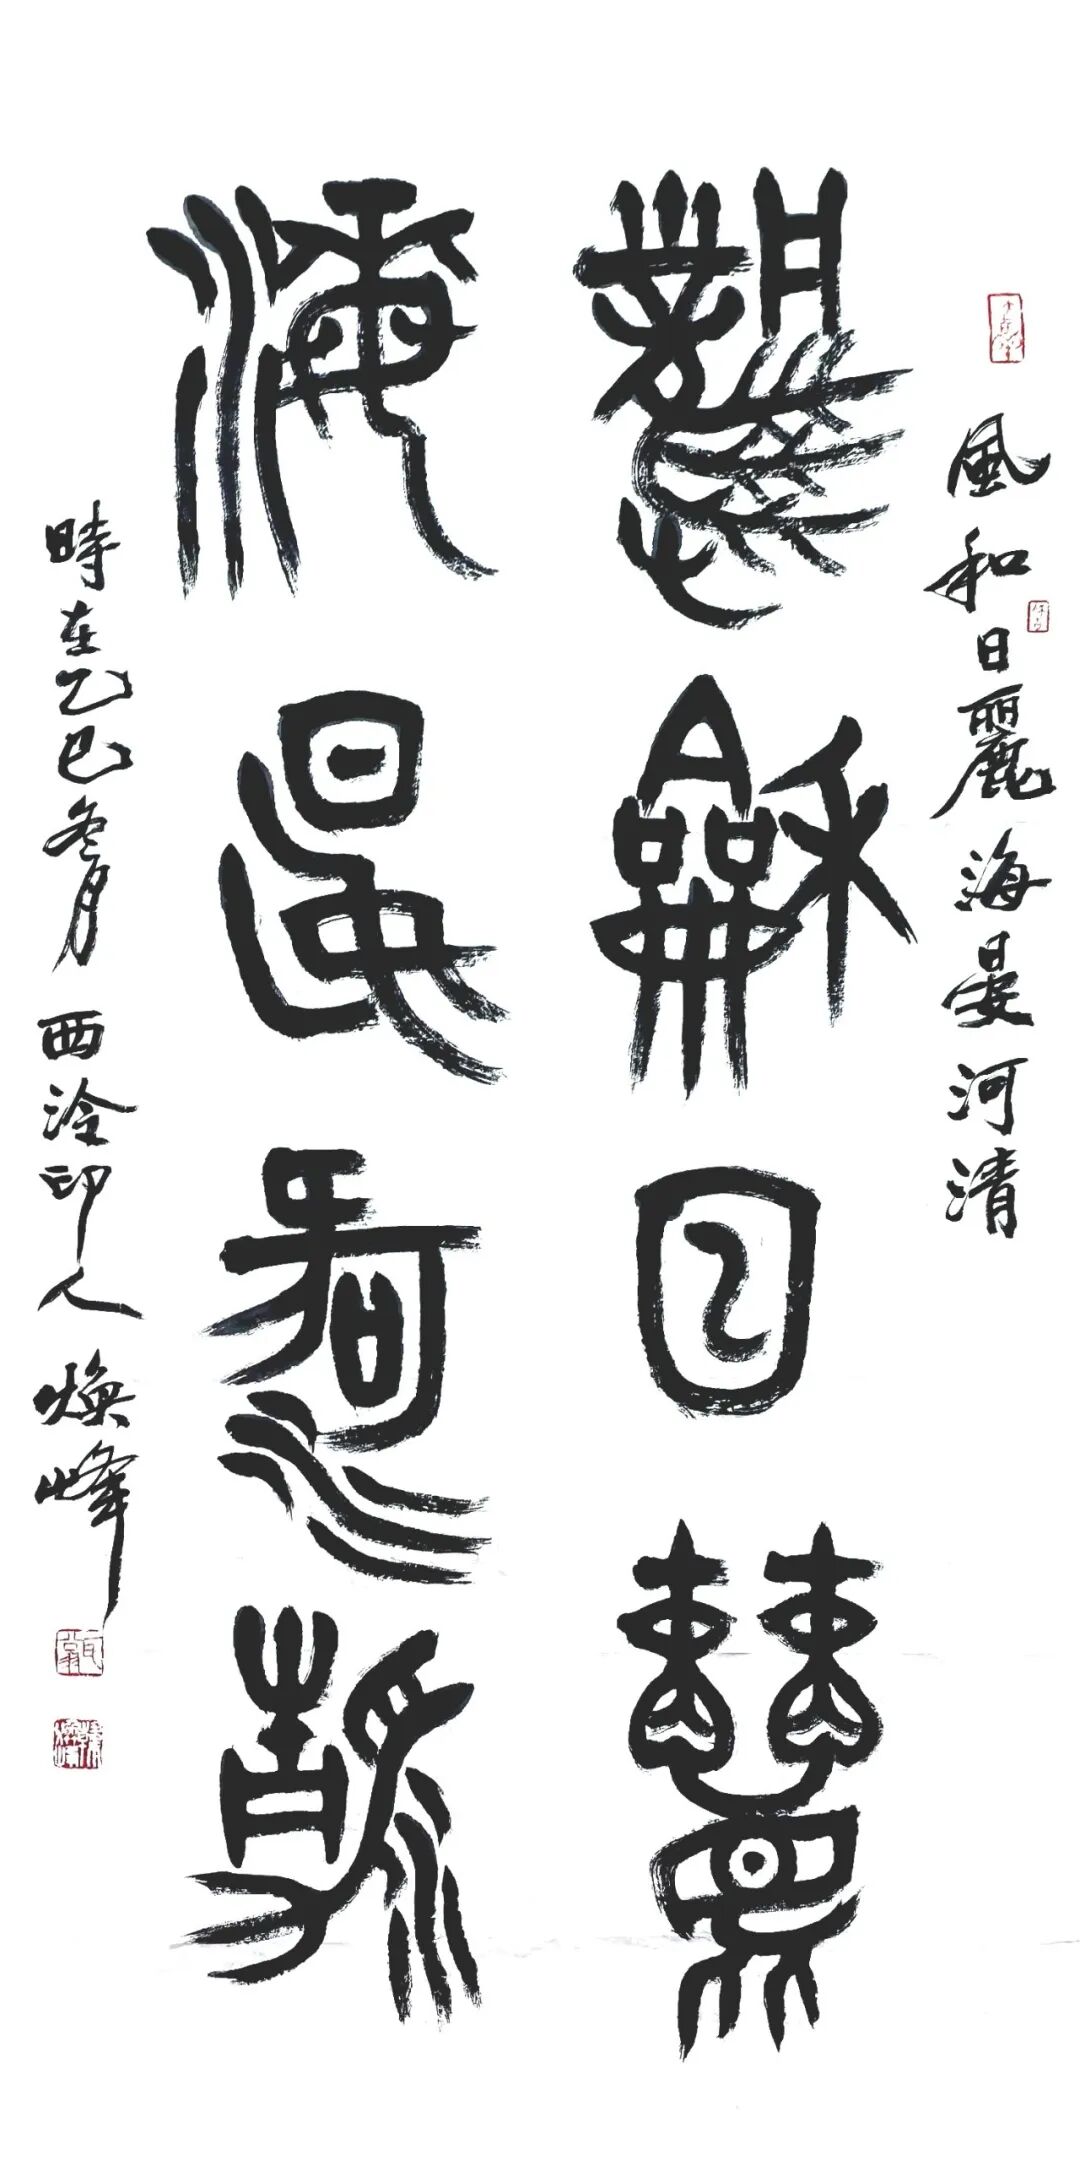 風和日麗海晏河清
風龢日麗
海晏河清
時在乙巳冬月西泠印人煥峰